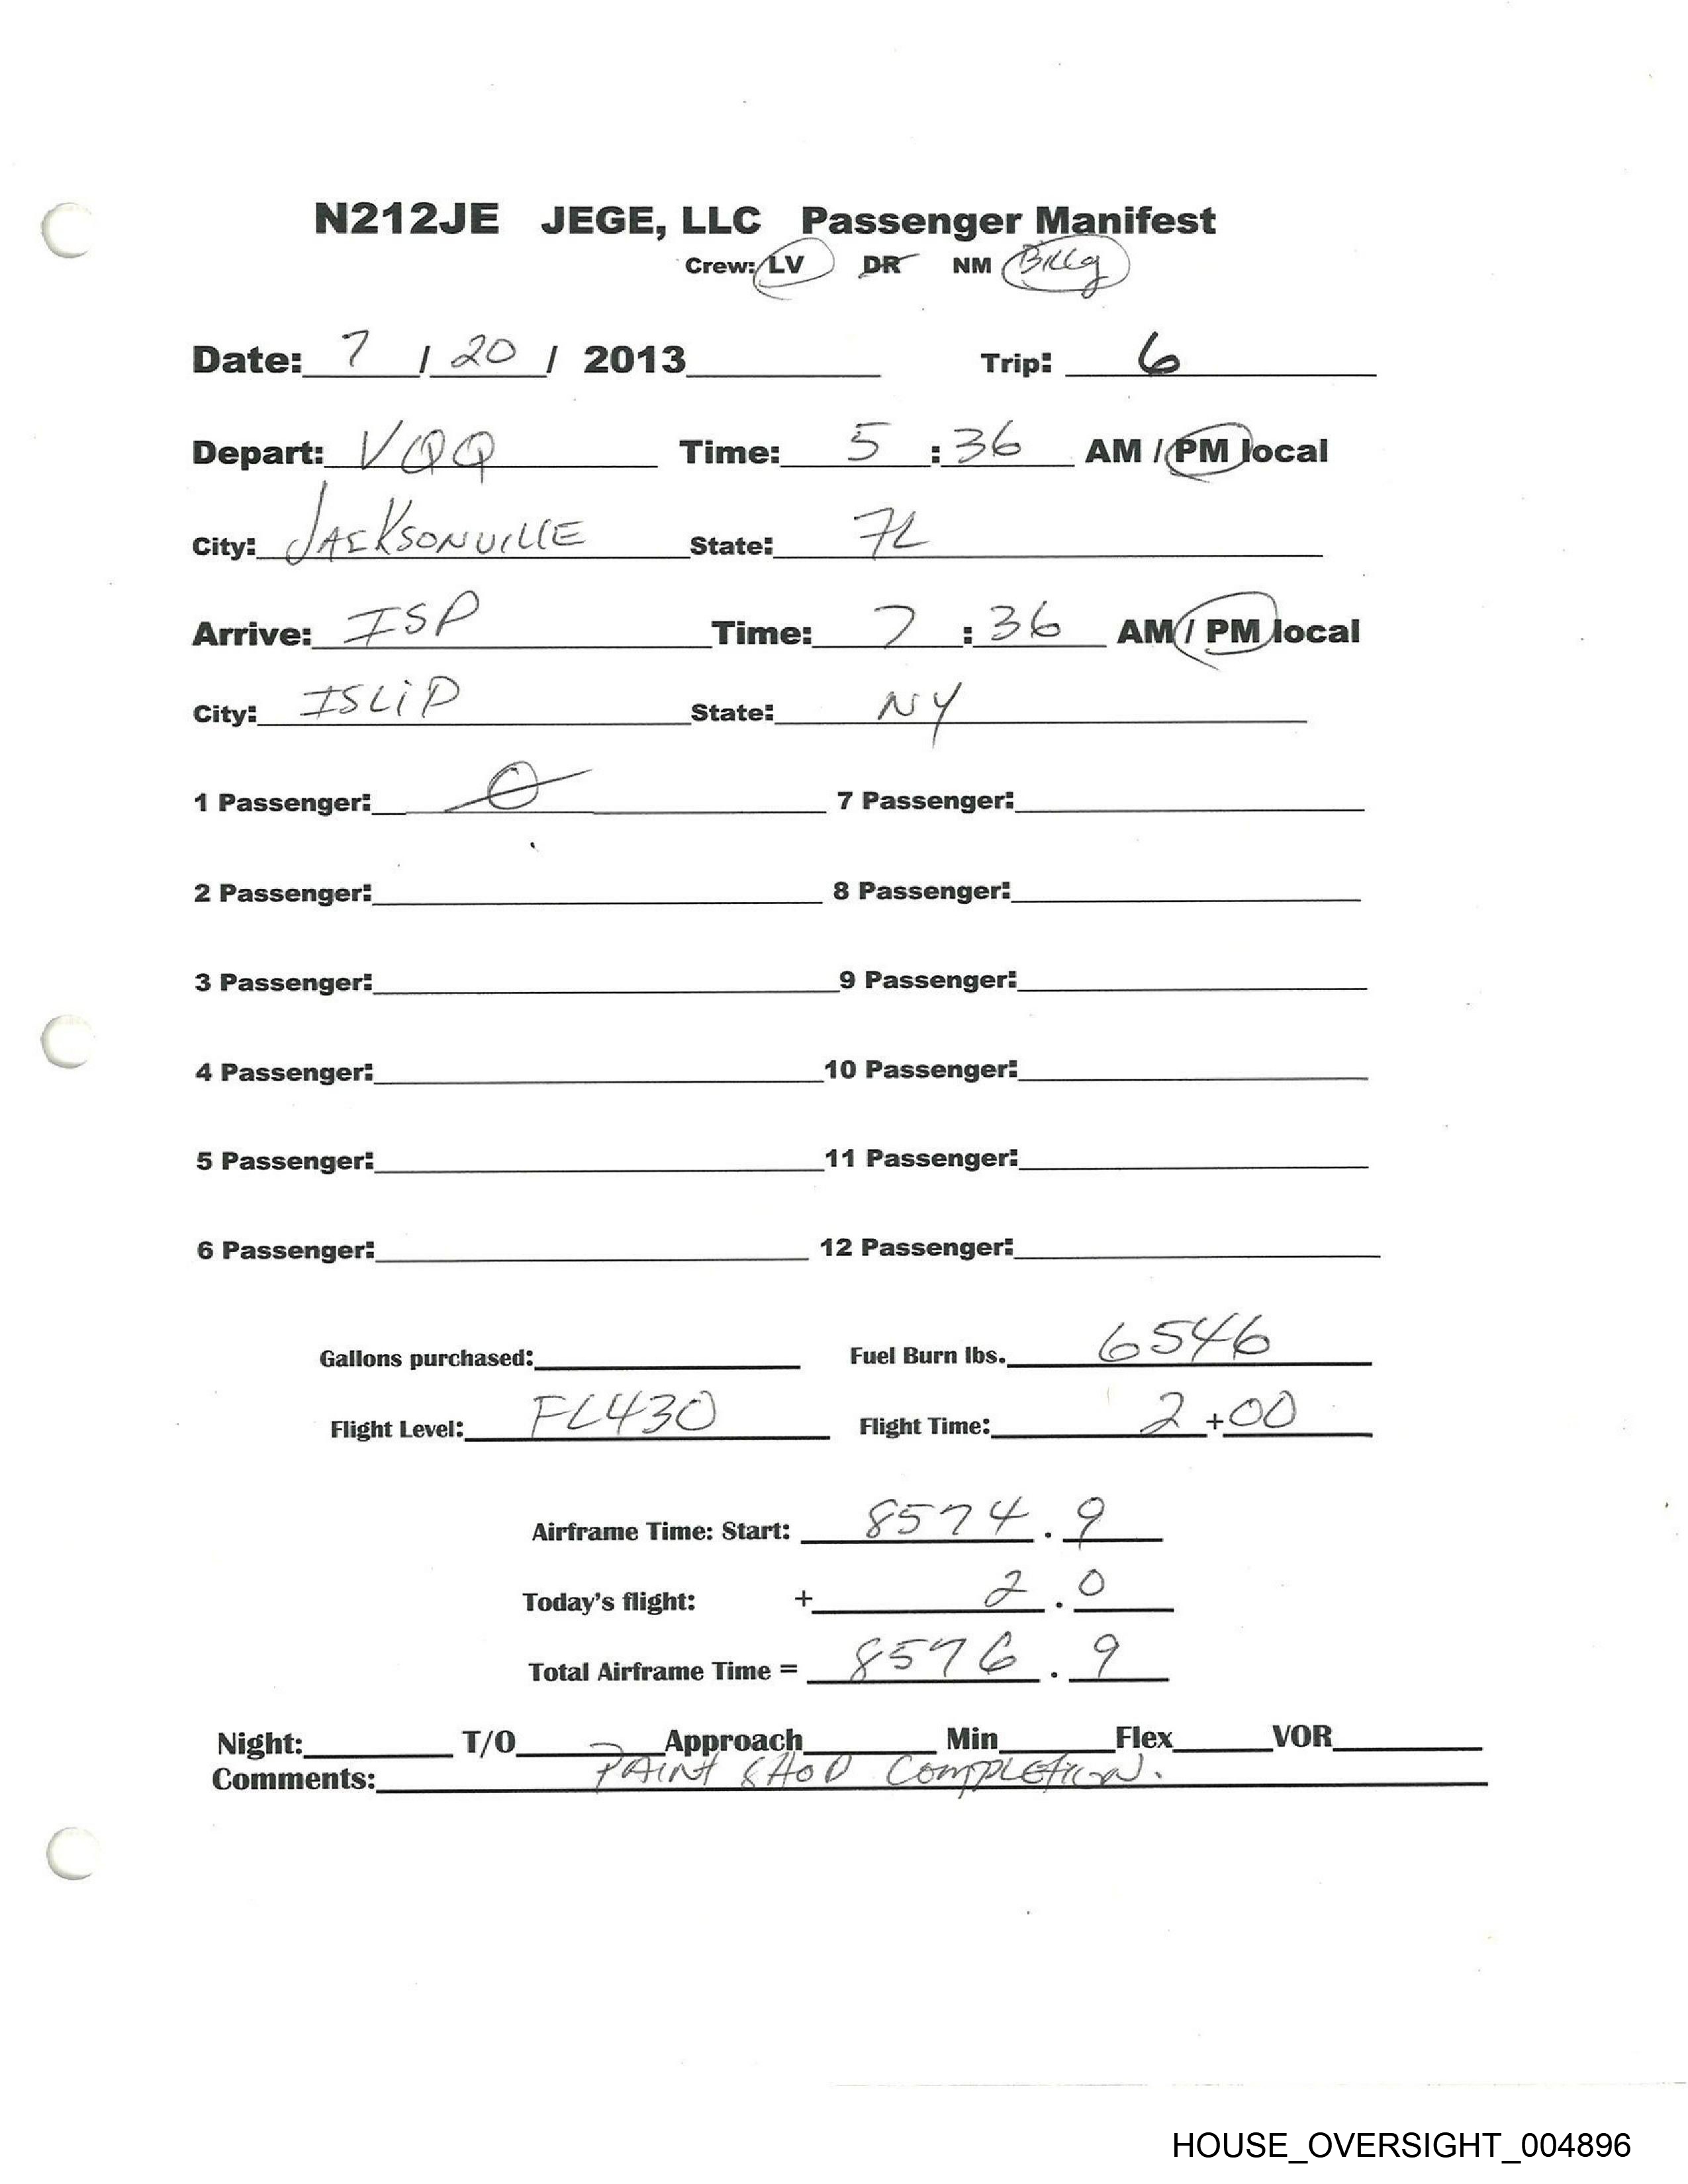 N212JE JEGE, LLC Passenger Manifest
Crew: LV DR NM Billy
Date: 7 / 20 / 2013 Trip: 6
Depart: VQQ Time: 5 : 36 AM / PM local
City: JACKSONVILLE State: FL
Arrive: ISP Time: 7 : 36 AM / PM local
City: ISLiP State: NY
1 Passenger: 0 7 Passenger:
2 Passenger: 8 Passenger:
3 Passenger: 9 Passenger:
4 Passenger: 10 Passenger:
5 Passenger: 11 Passenger:
6 Passenger: 12 Passenger:
Gallons purchased: Fuel Burn lbs. 6546
Flight Level: FL430 Flight Time: 2 + 00
Airframe Time: Start: 8574 . 9
Today's flight: + 2 . 0
Total Airframe Time = 8576 . 9
Night: T/O Approach Min Flex VOR
Comments: PAINT SHOP COMPLETION.
HOUSE_OVERSIGHT_004896